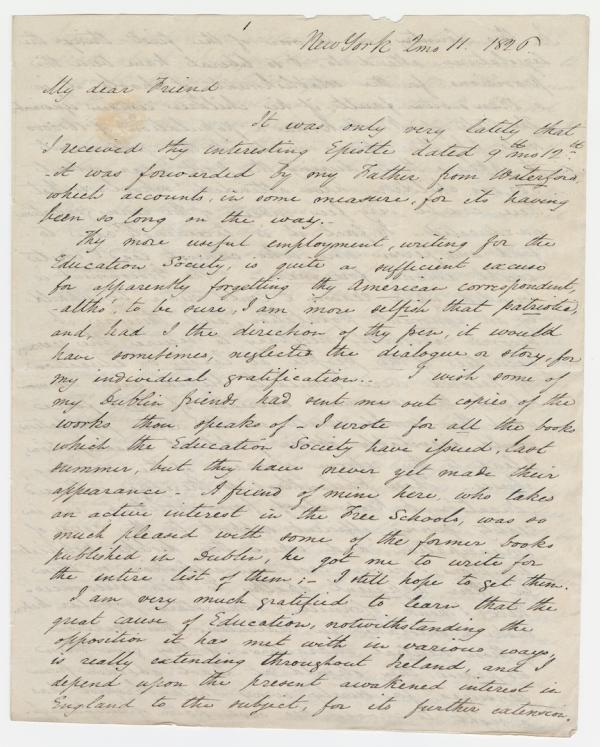 1
New York 2mo 11. 1826.
My dear Friend
It was only very lately that
I received thy interesting Epistle dated 9th mo 12th.
- it was forwarded by my Father from Waterford,
which accounts, in some measure, for its having
been so long on the way. -
Thy more useful employment, writing for the
Education Society, is quite a sufficient excuse
for apparently forgetting thy American correspondent,
- altho' to be sure, I am more selfish that patriotic,
and, had I the direction of thy pen, it would
have sometimes, neglected the dialogue or story, for
my individual gratification. - I wish some of
my Dublin friends had sent me out copies of the
works thou speaks of - I wrote for all the books
which the Education Society have issued, last
summer, but they have never yet made their
appearance - A friend of mine here who takes
an active interest in the Free Schools, was so
much pleased with some of the former books
published in Dublin, he got me to write for
the entire list of them; - I still hope to get them.
I am very much gratified to learn that the
great cause of Education, notwithstanding the
opposition it has met with in various ways,
is really extending throughout Ireland, and I
depend upon the present awakened interest in
England to the subject, for its further extension.